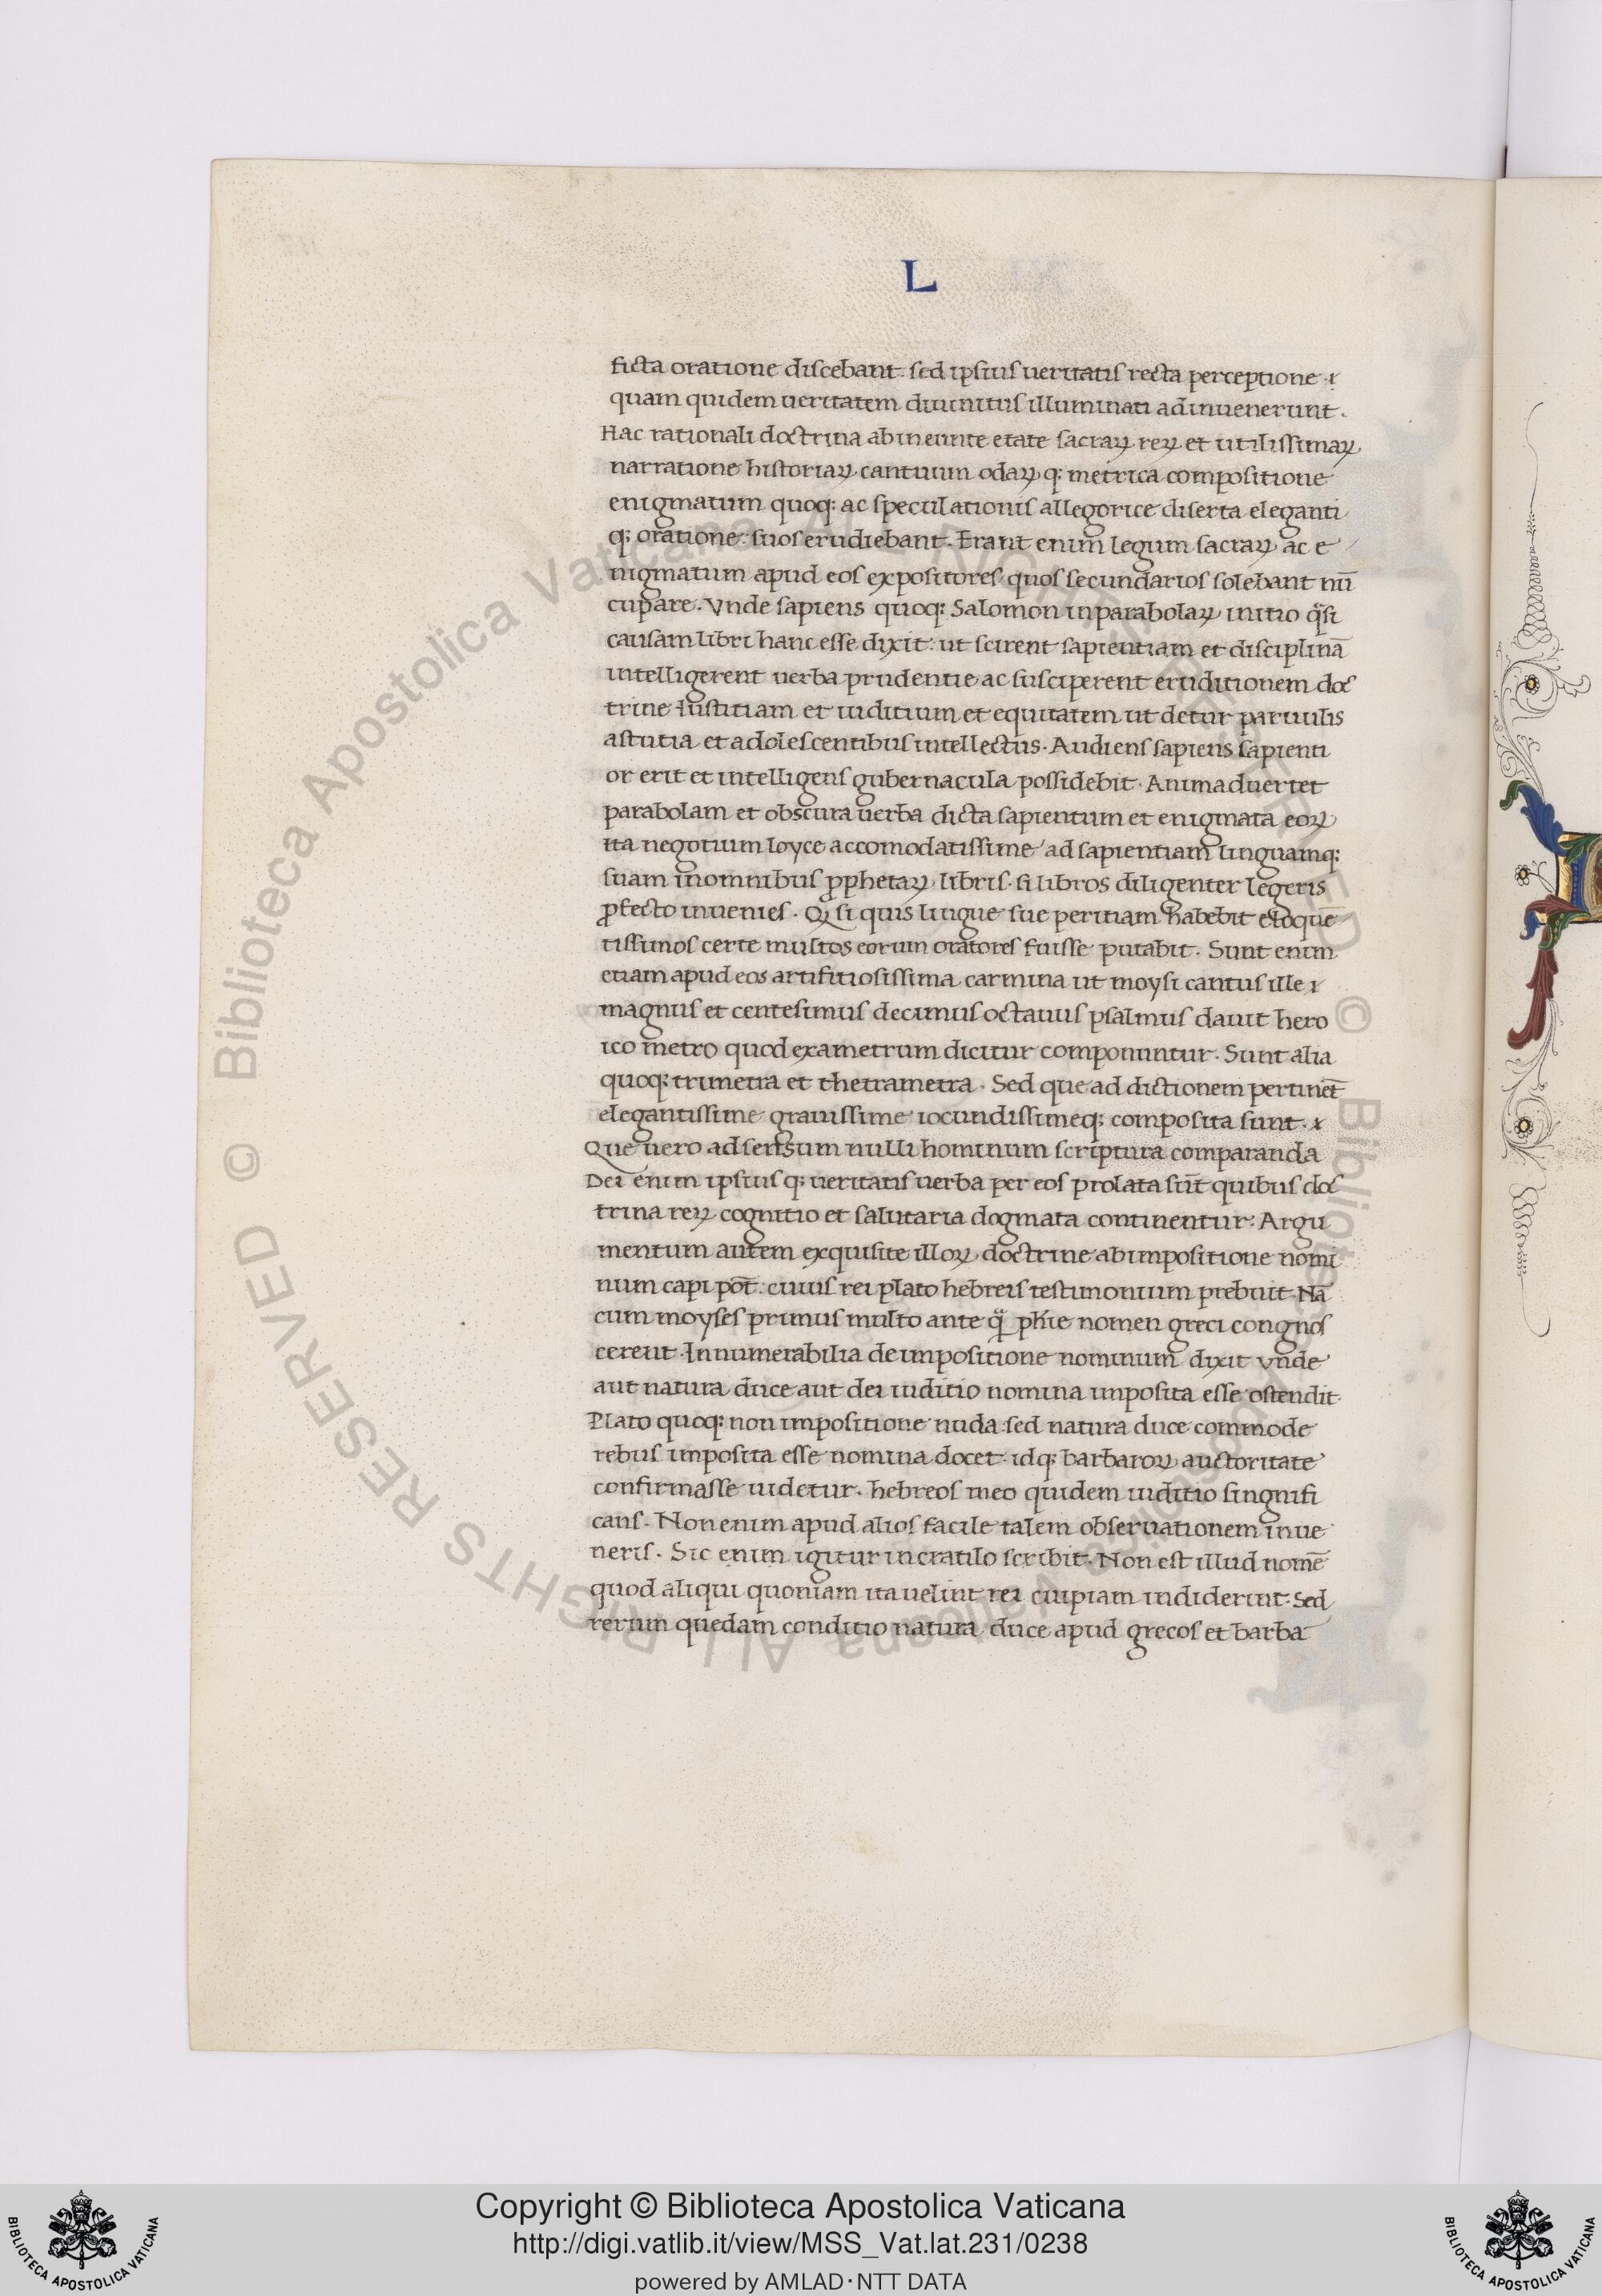 L
ficta oratione discebant: sed ipsius ueritatis recta perceptione
quam quidem ueritatem diuinitus illuminati adinuenerunt.
Hac rationali doctrina ab ineunte etate sacraꝝ reꝝ et utilissimaꝝ
narratione historiaꝝ cantuum odaꝝ qꝫ metrica compositione
enigmatum quoqꝫ ac speculationis allegorice diserta eleganti
qꝫ oratione: suos erudiebant. Erant enim legum sacraꝝ ac e
nigmatum apud eos expositores quos secundarios solebant nū
cupare. Vnde sapiens quoqꝫ Salomon in parabolaꝝ initio q̈si
causam libri hanc esse dixit: ut scirent sapientiam et disciplinā
intelligerent uerba prudentie ac susciperent eruditionem doc
trine Iustitiam et iuditium et equitatem ut detur paruulis
astutia et adolescentibus intellectus. Audiens sapiens sapienti
or erit et intelligens gubernacula possidebit. Animaduertet
parabolam et obscura uerba dicta sapientum et enigmata eoꝝ
ita negotium loyce accomodatissime ad sapientiam linguamqꝫ
suam in omnibus ꝓphetaꝝ libris. si libros diligenter legeris
ꝓfecto inuenies. Qꝫ si quis lingue sue peritiam habebit eloquē
tissimos certe multos eorum oratores fuisse putabit. Sunt enim
etiam apud eos artifitiosissima carmina ut moysi cantus ille
magnus et centesimus decimus octauus psalmus dauit hero
ico metro quod exametrum dicitur componuntur. Sunt alia
quoqꝫ trimetra et thetrametra. Sed que ad dictionem pertinēt
elegantissime grauissime iocundissimeqꝫ composita sunt.
Que uero ad sensum nulli hominum scriptura comparanda
Dei enim ipsius qꝫ ueritatis uerba per eos prolata sūt quibus doc
trina reꝝ cognitio et salutaria dogmata continentur: Argu
mentum autem exquisite illoꝝ doctrine ab impositione nomi
num capi pōt: cuius rei plato hebreis testimonium prebuit. Nā
cum moyses primus multo ante q̈ phīe nomen greci congnos
cerent. Innumerabilia de impositione nominum dixit vnde
aut natura duce aut dei iuditio nomina imposita esse ostendit.
Plato quoqꝫ non impositione nuda sed natura duce commode
rebus imposita esse nomina docet idqꝫ barbaroꝝ auctoritate
confirmasse uidetur. hebreos meo quidem iuditio singnifi
cans. Non enim apud alios facile talem obseruationem inue
neris. Sic enim igitur in cratilo scribit. Non est illud nomē
quod aliqui quoniam ita uelint rei cuipiam indiderint: Sed
rerum quedam conditio natura duce apud grecos et barba
© Biblioteca Apostolica Vaticana ALL RIGHTS RESERVED
© Biblioteca Apostolica Vaticana ALL RIGHTS RESERVED
Copyright © Biblioteca Apostolica Vaticana
http://digi.vatlib.it/view/MSS_Vat.lat.231/0238
powered by AMLAD·NTT DATA
BIBLIOTECA APOSTOLICA VATICANA
BIBLIOTECA APOSTOLICA VATICANA